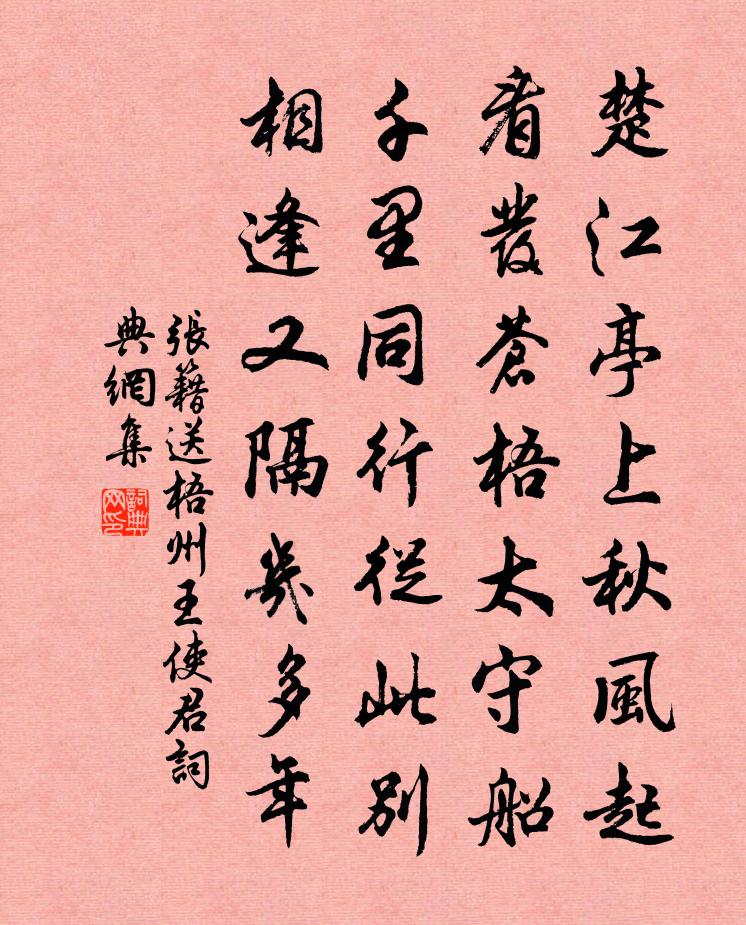 楚江亭上秋風起
看發蒼梧太守船
千里同行從此別
相逢又隔幾多年
張籍送梧州王使君詞
典網集
詞典網印